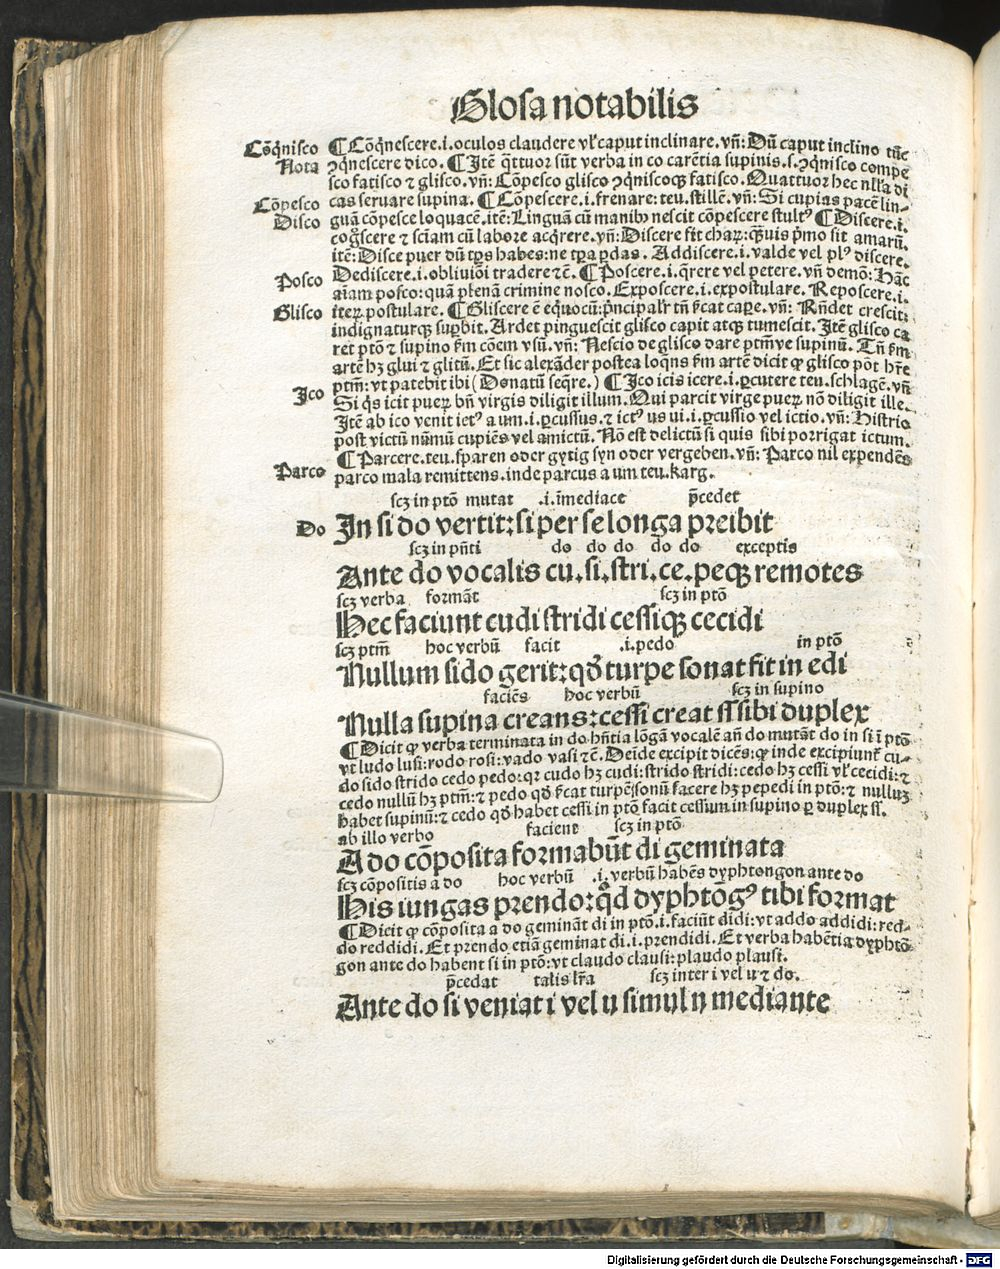 Glosa notabilis
Cōq̄nisco ¶ Cōq̄nescere .i. oculos claudere vl' caput inclinare. vn̄: Dū caput inclino tūc
Nota ꝯq̄nescere dico. ¶ Itē q̄ttuor sūt verba in co carētia supinis .s. ꝯq̄nisco compe
sco fatisco ⁊ glisco. vn̄: Cōpesco glisco ꝯq̄niscoqꝫ fatisco. Quattuor hec nll'a di
Cōpesco cas seruare supina. ¶ Cōpescere .i. frenare: teu. stillē. vn̄: Si cupias pacē lin-
Disco guā cōpesce loquacē. itē: Linguā cū manibꝰ nescit cōpescere stultꝰ ¶ Discere .i.
cog̃scere ⁊ sciam cū labore acq̄rere. vn̄: Discere fit charꝝ: q̄uis p̄mo sit amarū.
itē: Disce puer dū tp̄s habes: ne tp̄a ꝑdas. Addiscere .i. valde vel plꝰ discere.
Posco Dediscere .i. obliuiōi tradere ⁊c̄. ¶ Poscere .i. q̄rere vel petere. vn̄ demō: Hāc
aīam posco: quā plenā crimine nosco. Exposcere .i. expostulare. Reposcere .i.
Glisco iterꝝ postulare. ¶ Gliscere ē equocū: p̄ncipalr tn̄ s̄cat caꝑe. vn̄: Rn̄det crescit:
indignaturqꝫ suꝑbit. Ardet pinguescit glisco capit atqꝫ tumescit. Itē glisco ca
ret ptō ⁊ supino s̄m cōem vsū. vn̄: Nescio de glisco dare ptm̄ve supinū. Tn̄ s̄m
artē hꝫ glui ⁊ glitū. Et sic alexāder postea loqns s̄m artē dicit ꝙ glisco pōt hr̄e
ptm̄: vt patebit ibi (Donatū seq̄re.) ¶ Ico icis icere .i. ꝑcutere teu. schlagē. vn̄
Ico Si q̄s icit puerꝝ bn̄ virgis diligit illum. Qui parcit virge puerꝝ nō diligit ille.
Itē ab ico venit ictꝰ a um .i. ꝑcussus. ⁊ ictꝰ us ui .i. ꝑcussio vel ictio. vn̄: Histrio
post victū nūmū cupiēs vel amictū. Nō est delictū si quis sibi porrigat ictum.
¶ Parcere. teu. sparen oder gytig syn oder vergeben. vn̄: Parco nil expendēs
Parco parco mala remittens. inde parcus a um teu. karg.
scꝫ in ptō mutat .i. īmediace p̄cedet
Do In si do vertit: si per se longa preibit
scꝫ in pn̄ti do do do do do exceptis
Ante do vocalis cu. si. stri. ce. peqꝫ remotes
scꝫ verba formāt scꝫ in ptō
Hec faciunt cudi stridi cessiqꝫ cecidi
scꝫ ptm̄ hoc verbū facit .i. pedo in ptō
Nullum sido gerit: qđ turpe sonat fit in edi
faciēs hoc verbū scꝫ in supino
Nulla supina creans: cessi creat ss sibi duplex
¶ Dicit ꝙ verba terminata in do hn̄tia lōgā vocalē an̄ do mutāt do in si ī ptō
vt ludo lusi: rodo rosi: vado vasi ⁊c̄. Deīde excipit dicēs: ꝙ inde excipiunt̄ cu-
do sido strido cedo pedo: qꝛ cudo hꝫ cudi: strido stridi: cedo hꝫ cessi vl' cecidi: ⁊
cedo nullū hꝫ ptm̄: ⁊ pedo qđ s̄cat turpē sonū facere hꝫ pepedi in ptō: ⁊ nulluꝫ
habet supinū: ⁊ cedo qđ habet cessi in ptō facit cessum in supino ꝑ duplex ss.
ab illo verbo faciene scꝫ in ptō
A do cōposita formabūt di geminata
scꝫ cōpositis a do hoc verbū .i. verbū habēs dyphtongon ante do
His iungas prendo: qđ dyphtōgꝰ tibi format
¶ Dicit ꝙ cōposita a do gemināt di in ptō .i. faciūt didi: vt addo addidi: red-
do reddidi. Et prendo etiā geminat di .i. prendidi. Et verba habētia dyphtō-
gon ante do habent si in ptō: vt claudo clausi: plaudo plausi.
p̄cedat talis lr̄a scꝫ inter i vel u ⁊ do.
Ante do si veniat i vel u simul n mediante
Digitalisierung gefördert durch die Deutsche Forschungsgemeinschaft - DFG